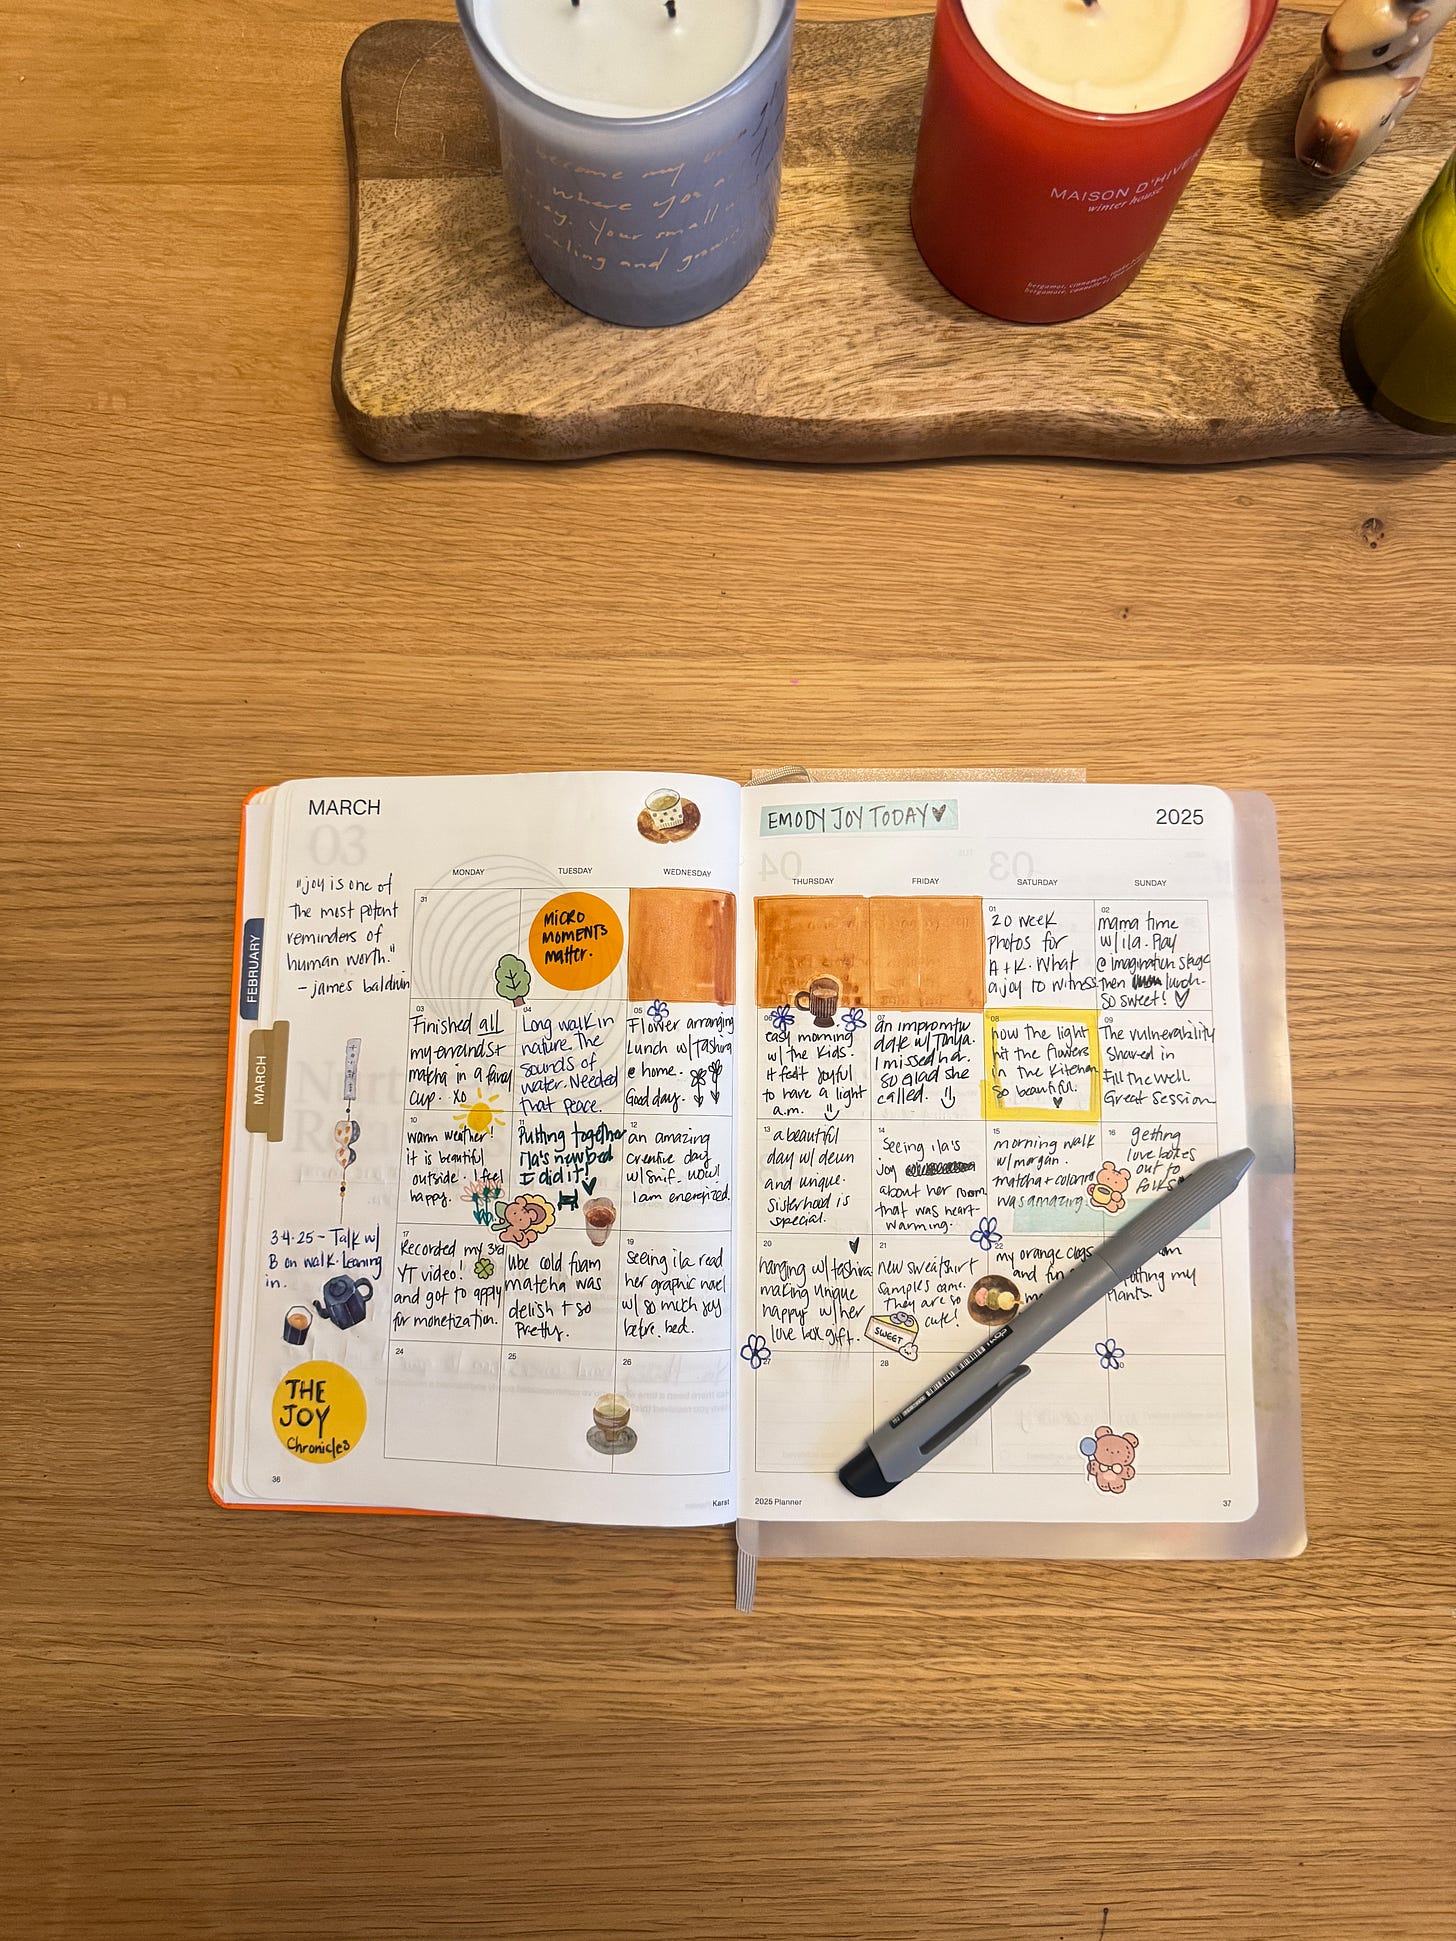 become my
where you
Your small
and
MAISON D'HIVER
winter house
MARCH
03
"joy is one of
the most potent
reminders of
human worth."
- james baldwin
FEBRUARY
MARCH
3·4·25 - Talk w/
B on walk. Leaning
in.
THE
JOY
Chronicles
36
MONDAY
TUESDAY
WEDNESDAY
31
MICRO
MOMENTS
matter.
03
Finished all
my errands +
matcha in a fancy
cup. xo
04
Long walk in
nature. The
sounds of
water. Needed
that peace.
05
Flower arranging
Lunch w/ Tashira
@ home.
Good day.
10
warm weather!
it is beautiful
outside. I feel
happy.
11
Putting together
Ila's new bed
I did it!
12
an amazing
creative day
w/ Snif. wow!
I am energized.
17
Recorded my 3rd
YT video!
and got to apply
for monetization.
ube cold foam
matcha was
delish + so
Pretty.
19
Seeing ila read
her graphic novel
w/ so much joy
before bed.
24
25
26
Karst
EMODY JOY TODAY
2025
THURSDAY
FRIDAY
SATURDAY
SUNDAY
01
20 week
photos for
A + K. What
a joy to witness
02
mama time
w/ ila. Play
@ imagination stage
then lunch.
So sweet!
06
easy morning
w/ the kids.
it felt joyful
to have a light
a.m.
07
an impromtu
date w/ Tanya.
I missed her.
so glad she
called.
08
how the light
hit the flowers
in the kitchen
so beautiful.
09
The vulnerability
shared in
Fill the Well.
Great Session
13
a beautiful
day w/ deun
and unique.
Sisterhood is
special.
14
Seeing ila's
joy
about her room
that was heart-
warming.
15
morning walk
w/ morgan.
matcha +
was amazing.
16
getting
love boxes
out to
folks
20
hanging w/ tashira
making unique
happy w/ her
love box gift.
21
new sweatshirt
samples came.
They are so
cute!
SWEET
22
my orange clogs
and fun
potting my
plants.
27
28
2025 Planner
37